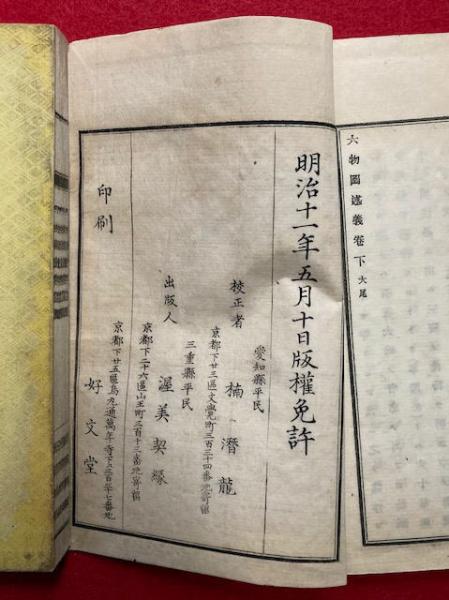 六物圖述義卷下 大尾
明治十一年五月十日版權免許
愛知縣平民
校正者 楠潛龍
京都下廿三區文覺町三百三十四番地寄留
三重縣平民
出版人 渥美契縁
京都下二十六區山王町三百十三番地寄留
印刷 好文堂
京都下廿五區烏丸通萬年寺下